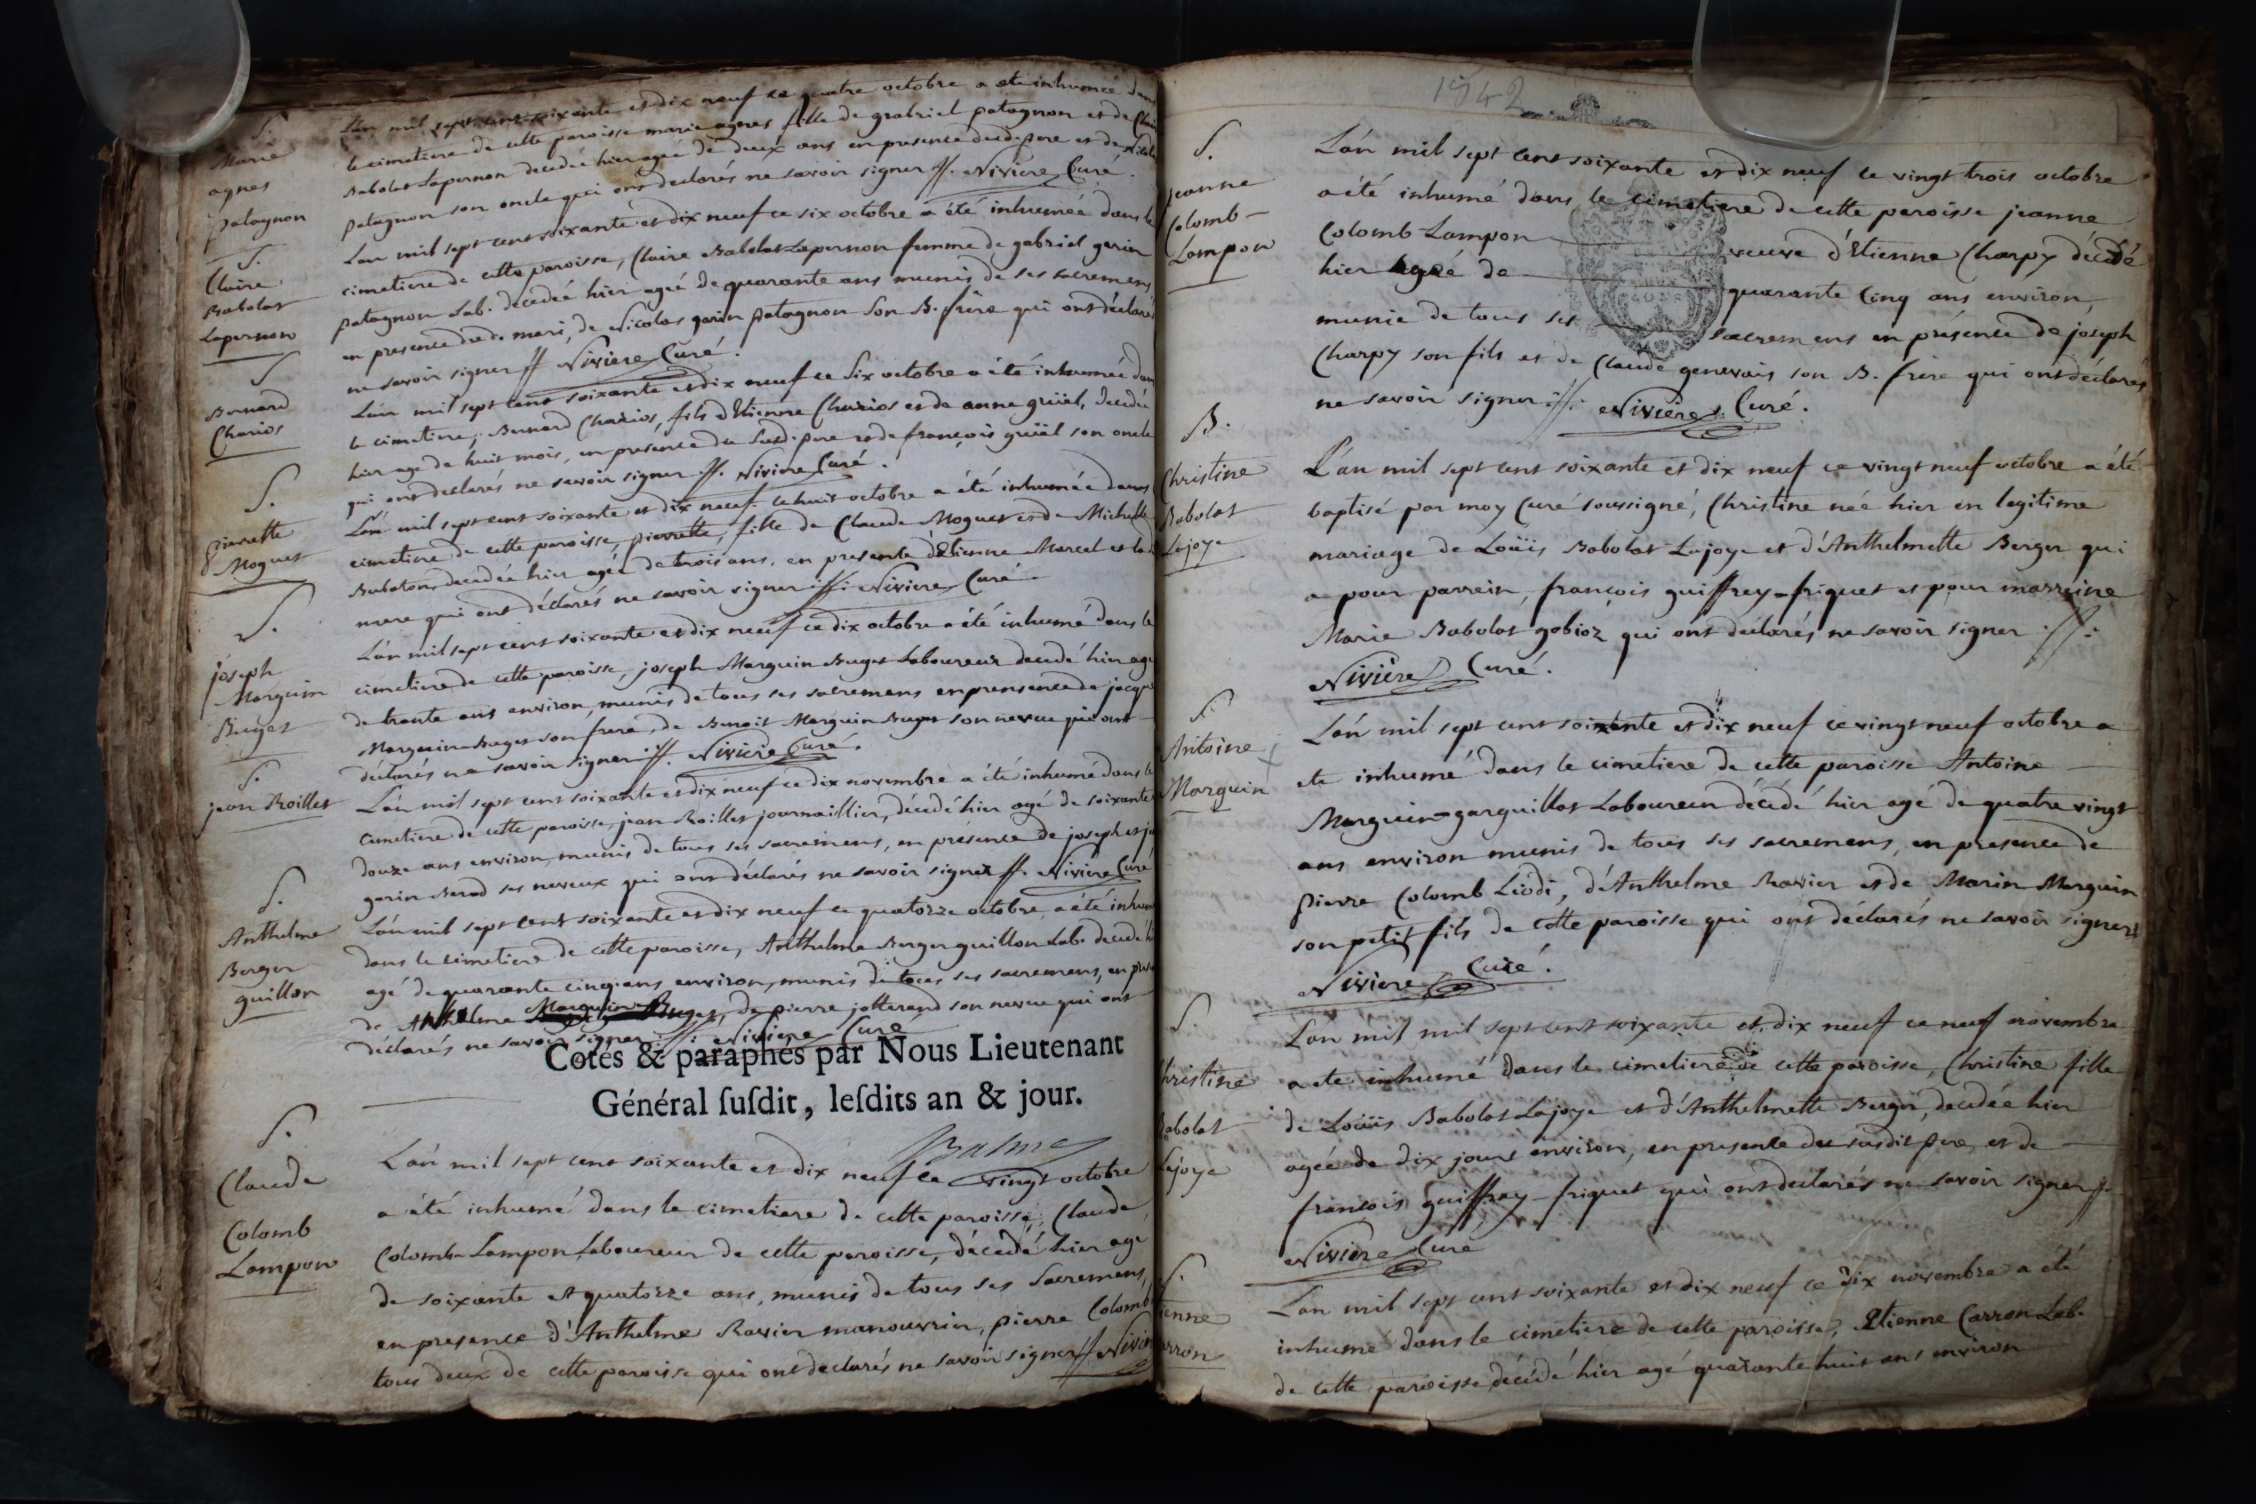 S.
Marie
agnes
patagnon
L'an mil sept cent soixante et dix neuf ce quatre octobre a eté inhumée dans
le cimetiere de cette paroisse marie agnes fille de gabriel patagnon et de Claire
Babolat Lapernon decedée hier agée de deux ans en presence dud. pere et de
patagnon son oncle qui ont declarés ne savoir signer //. Niviere Curé.
S.
Claire
Babolat
Lapernon
L'an mil sept cent soixante et dix neuf ce six octobre a été inhumée dans le
cimetiere de cette paroisse, Claire Babolat Lapernon femme de gabriel garin
patagnon Lab. decedée hier agée de quarante ans munis de ses sacremens
en presence dud. mari, de Nicolas garin patagnon son B. frère qui ont déclarés
ne savoir signer // Niviere Curé.
S
Bernard
Charios
L'an mil sept cent soixante et dix neuf ce six octobre a été inhumée dans
le cimetiere, Bernard Charios, fils d'Etienne Charios et de anne guiël, decedé
hier age de huit mois, en presence du susd. pere et de françois guiël son oncle
qui ont declarés ne savoir signer //. Niviere Curé.
S.
Pierrette
Moguet
L'an mil sept cent soixante et dix neuf ce huit octobre a été inhumée dans
cimetiere de cette paroisse, pierrette, fille de Claude Moguet et de Michelle
Babolat, decedée hier agée de trois ans, en presence d'Etienne Marcel et la
mere qui ont déclarés ne savoir signer //: Niviere Curé
S.
joseph
Marguin
Buget
L'an mil sept cent soixante et dix neuf ce dix octobre a été inhumé dans le
cimetiere de cette paroisse, joseph Marguin Buget Laboureur decedé hier age
de trente ans environ, munis de tous ses sacremens en prensence de jacque
Marguin Buget son frere, de Benoit Marguin Buget son neveu qui ont
déclarés ne savoir signer //. Niviere Curé.
S.
jean Roillet
L'an mil sept cent soixante et dix neuf ce dix novembre a été inhumé dans le
cimetiere de cette paroisse, jean Roillet journaillier, décedé hier agé de soixante
douze ans environ, munis de tous ses sacremens, en présence de joseph et
garin Berod ses neveux qui ont déclarés ne savoir signer //. Niviere Curé
S.
Anthelme
Berger
guillon
L'an mil sept cent soixante et dix neuf ce quatorze octobre, a été inhumé
dans le cimetiere de cette paroisse, Anthelme Berger guillon Lab. decedé
agé de quarante cinq ans environ, munis de tous ses sacremens, en pres
de Anthelme Marguin Buget, de pierre jotterand son neveu qui ont
déclarés ne savoir signer //: Niviere Curé
Cotés & paraphés par Nous Lieutenant
Général ſuſdit, leſdits an & jour.
Balme
S.
Claude
Colomb
Lampon
L'an mil sept cent soixante et dix neuf ce vingt octobre
a été inhumé dans le cimetiere de cette paroisse, Claude
Colomb Lampon Laboureur de cette paroisse, décedé hier age
de soixante et quatorze ans, munis de tous ses sacremens,
en presence d'Anthelme Ravier manouvrier, pierre Colomb
tous deux de cette paroisse qui ont declarés ne savoir signer // Nivier
1942
S.
jeanne
Colomb-
Lampon
L'an mil sept cent soixante et dix neuf ce vingt trois octobre
a été inhumé dans le cimetiere de cette paroisse jeanne
Colomb Lampon veuve d'Etienne Charpy décedé
hier agée de quarante cinq ans environ
munie de tous ses sacremens en présence de joseph
Charpy son fils et de Claude genevais son B. frère qui ont déclarés
ne savoir signer //: Niviere Curé.
B.
Christine
Babolat
Lajoye
L'an mil sept cent soixante et dix neuf ce vingt neuf octobre a été
baptisé par moy Curé soussigné, Christine née hier en legitime
mariage de Loüis Babolat Lajoye et d'Anthelmette Berger qui
a pour parrein, françois guiffrey-friquet et pour marreine
Marie Babolat gobioz qui ont déclarés ne savoir signer .//.
Niviere Curé.
S.
Antoine
Marguin
L'an mil sept cent soixante et dix neuf ce vingt neuf octobre a
ete inhumé dans le cimetiere de cette paroisse Antoine
Marguin-garguillot Laboureur décédé hier agé de quatre vingt
ans environ munis de tous ses sacremens, en presence de
pierre Colomb Liodi, d'Anthelme Ravier et de Marin Marguin
son petit fils de cette paroisse qui ont déclarés ne savoir signer
Niviere Curé.
S.
Christine
Babolat
Lajoye
L'an mil mil sept cent soixante et dix neuf ce neuf novembre
a ete inhumé dans le cimetiere de cette paroisse, Christine fille
de Loüis Babolat Lajoye et d'Anthelmette Berger, decedée hier
agée de dix jours environ, en presence du susdit pere, et de
françois guiffrey-friquet qui ont declarés ne savoir signer //.
Niviere Curé
S.
tienne
arron
L'an mil sept cent soixante et dix neuf ce dix novembre a été
inhumé dans le cimetiere de cette paroisse, Etienne Carron Lab.
de cette paroisse décédé hier agé quarante huit ans environ